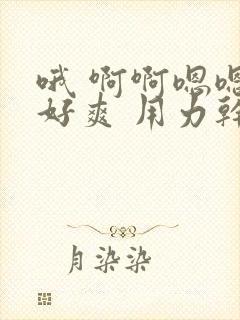 哦 啊啊嗯嗯
好爽 用力幹
月染染